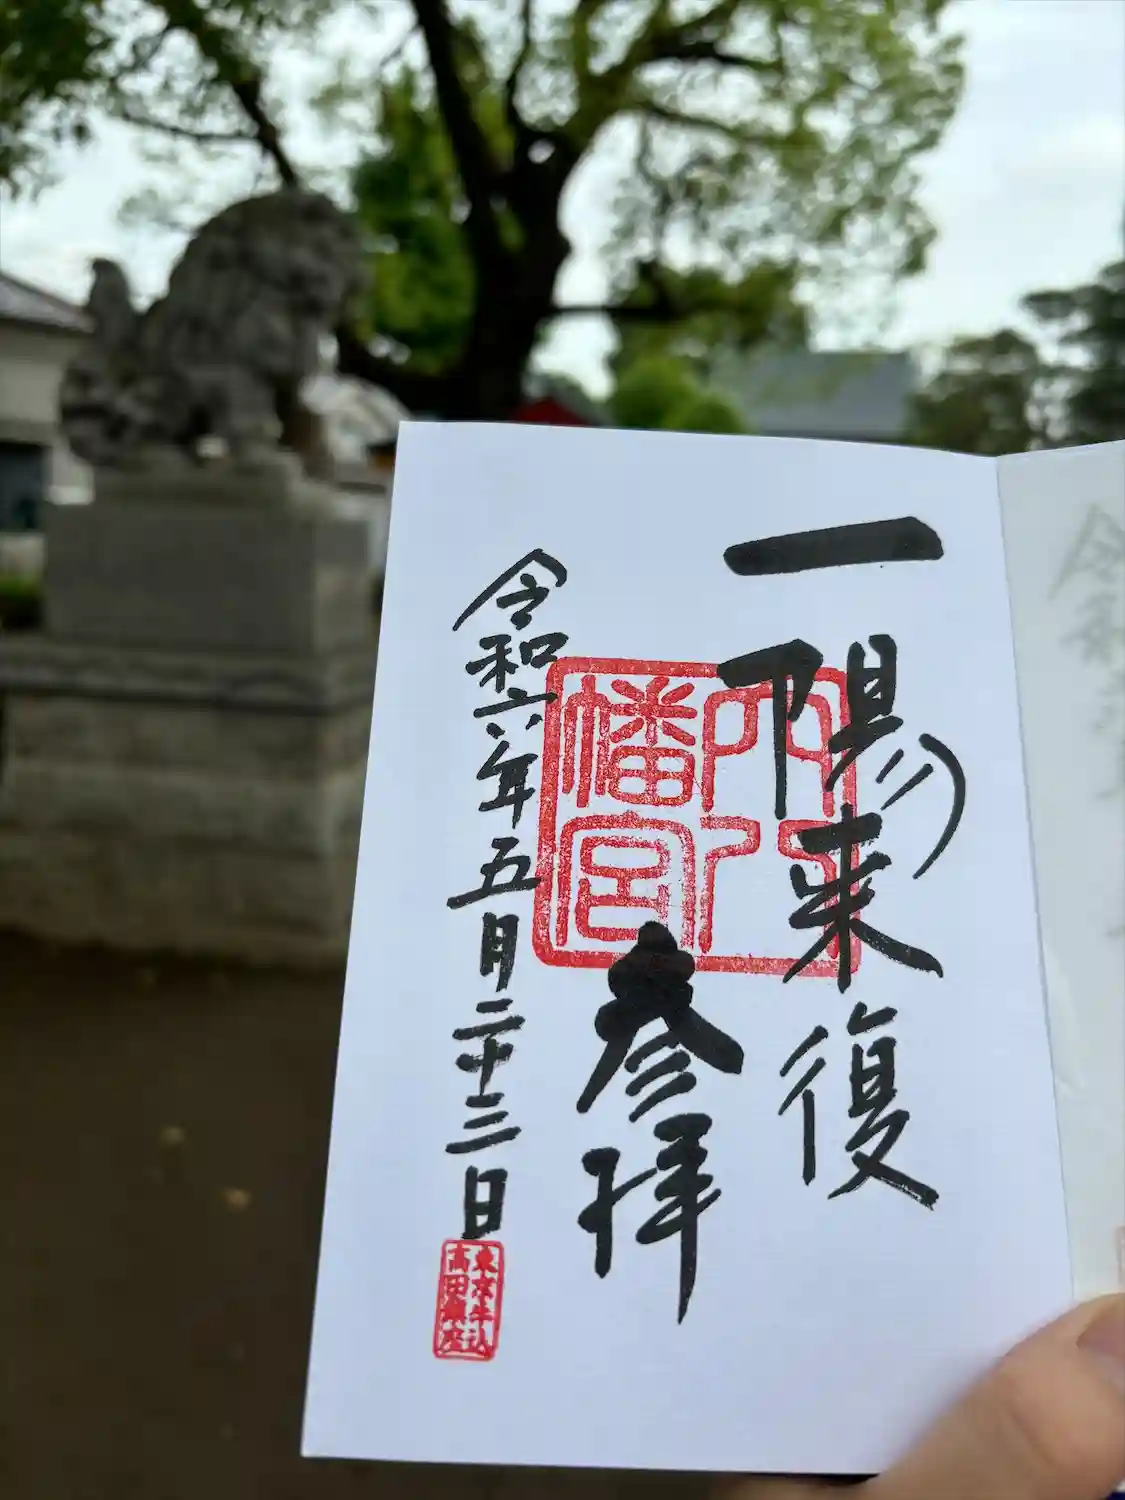 一陽来復
参拝
令和六年五月二十三日
穴八
幡宮
東京牛込
高田鎮座